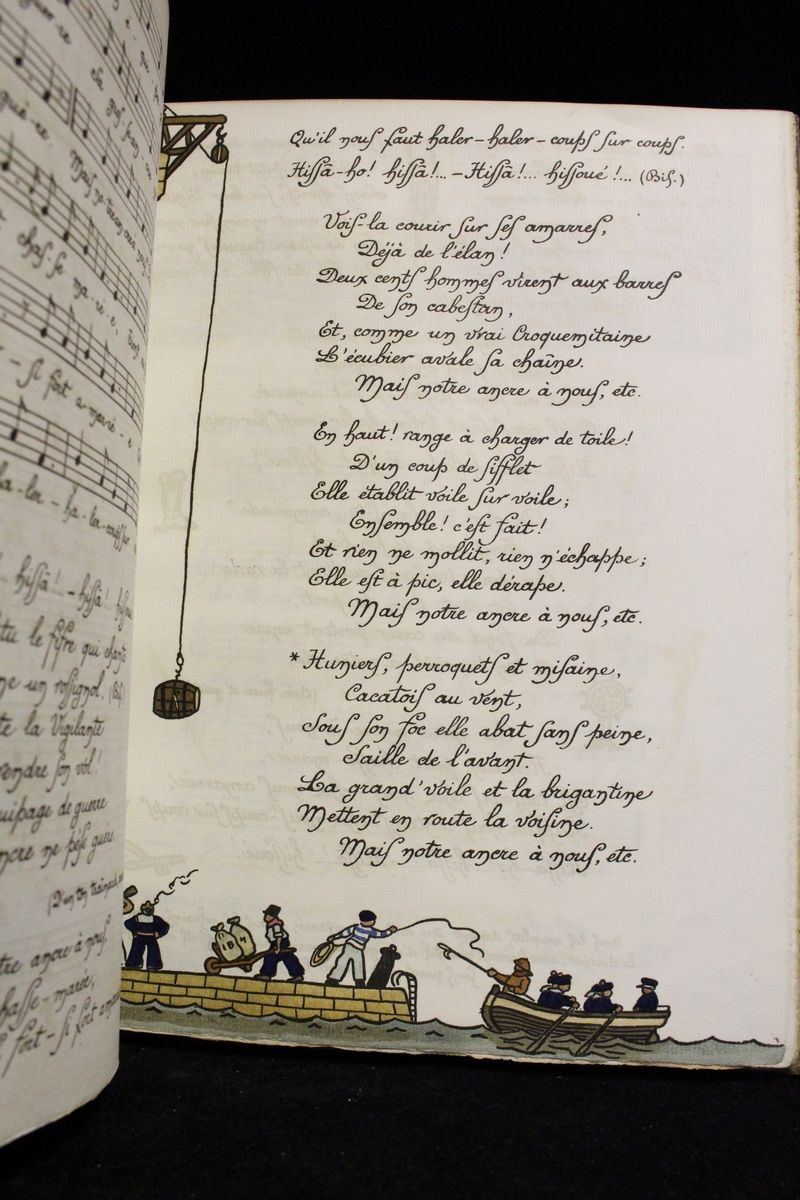 Qu'il nous faut haler-haler-coups sur coups.
Hissâ-ho! hissâ!... - Hissâ!... hissoué!... (Bis.)
Vois-la courir sur ses amarres,
Déjà de l'élan!
Deux cents hommes virent aux barres
De son cabestan,
Et, comme un vrai Croquemitaine
L'écubier avale sa chaîne.
Mais notre ancre à nous, etc.
En haut! range à charger de toile!
D'un coup de sifflet
Elle établit voile sur voile;
Ensemble! c'est fait!
Et rien ne mollit, rien n'échappe;
Elle est à pic, elle dérape.
Mais notre ancre à nous, etc.
* Huniers, perroquets et misaine,
Cacatois au vent,
Sous son foc elle abat sans peine,
Saille de l'avant.
La grand'voile et la brigantine
Mettent en route la voisine.
Mais notre ancre à nous, etc.
hissâ!... - hissâ!
le fifre qui chante
un rossignol. (Bis)
la Vigilante
son vol!
de guerre
ne pèse guère
ancre à nous,
chasse-marée,
fort-si fort